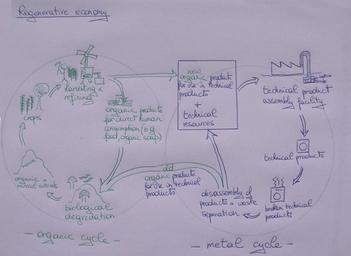 Regenerative economy
harvesting &
refining
crops
organic products
for direct human
consumption (e.g.
food, organic soap)
new
organic products
for use in technical
products
+
technical
resources
technical product
assembly facility
technical products
broken technical
products
disassembly of
products & waste
separation
old
organic products
for use in technical
products
biological
degradation
organic
- organic cycle -
- metal cycle -